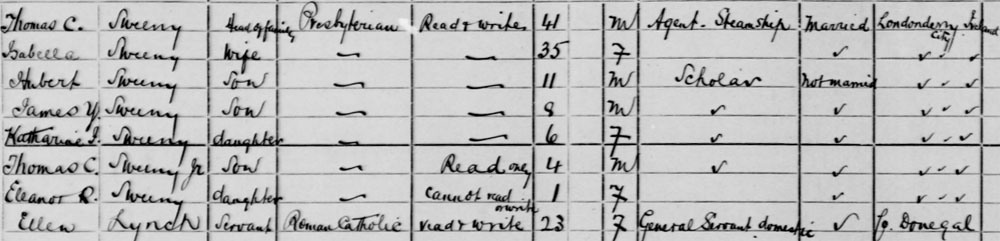 Thomas C. Sweeny Head of family Presbyterian Read & write 41 M Agent - Steamship Married Londonderry City Ireland
Isabella Sweeny Wife 〃 〃 35 F ✓ ✓ ✓
Hubert Sweeny Son 〃 〃 11 M Scholar Not married ✓ ✓ ✓
James Y. Sweeny Son 〃 〃 8 M ✓ ✓ ✓ ✓ ✓
Katharine I. Sweeny daughter 〃 〃 6 F ✓ ✓ ✓ ✓ ✓
Thomas C. Sweeny Jr Son 〃 Read only 4 M ✓ ✓ ✓ ✓ ✓
Eleanor R. Sweeny daughter 〃 Cannot read or write 1 F ✓ ✓ ✓ ✓
Ellen Lynch Servant Roman Catholic read & write 23 F General Servant domestic ✓ Co. Donegal